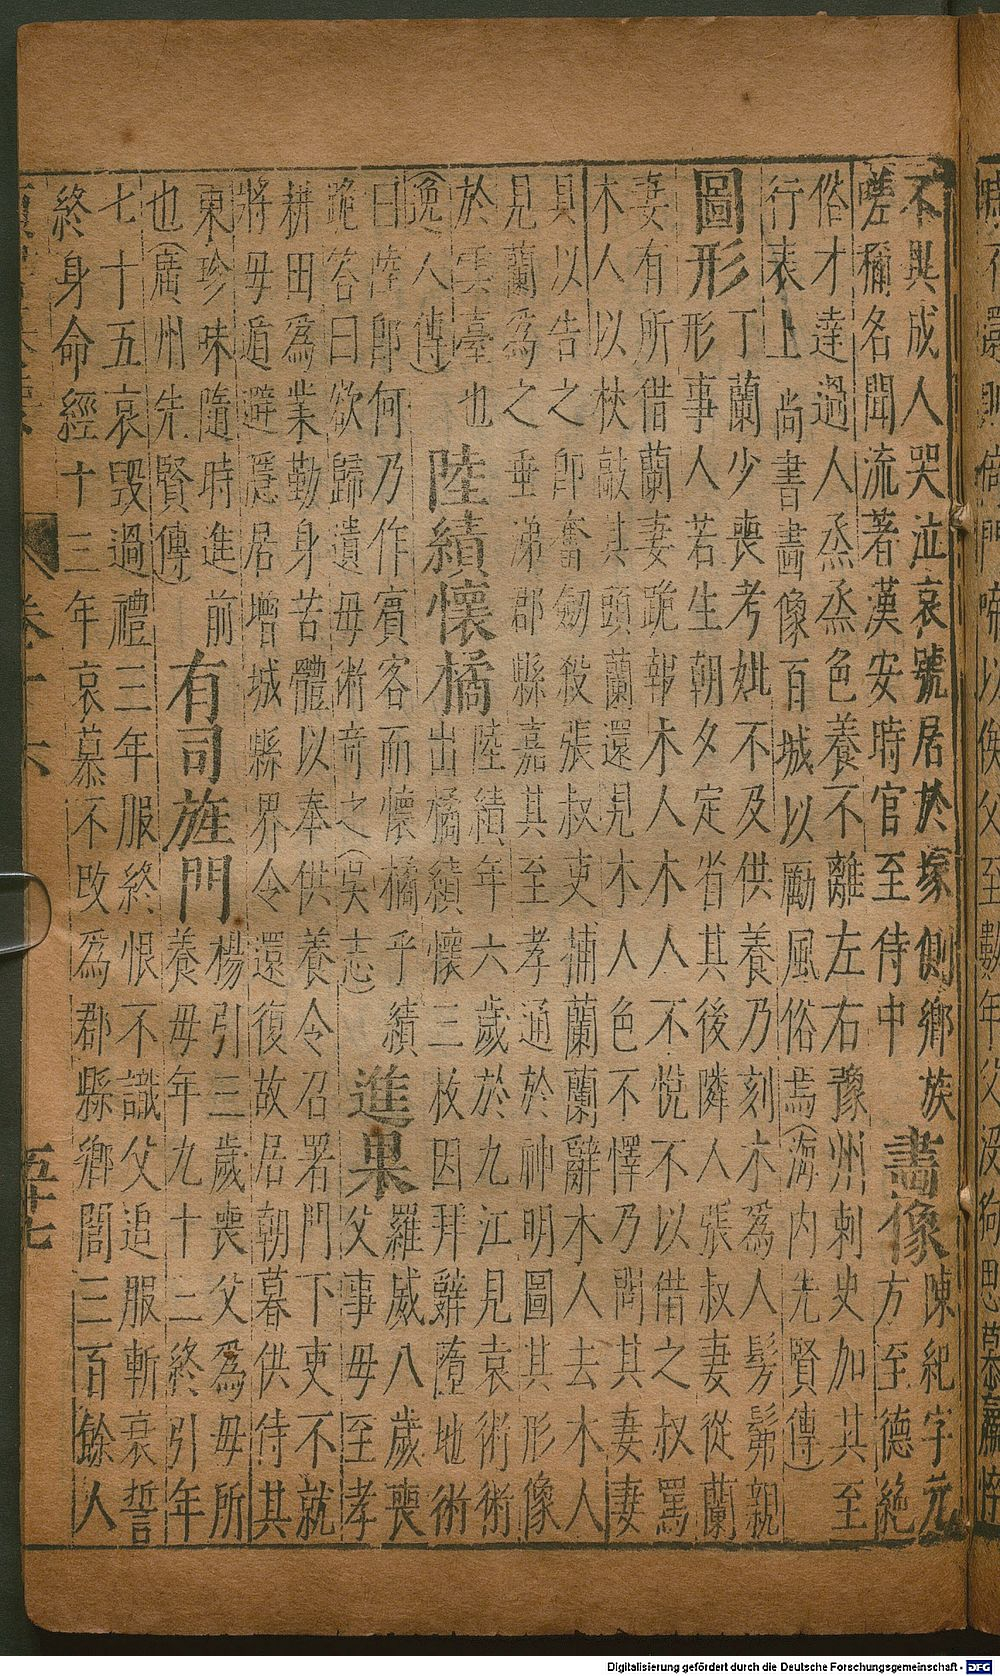 不與成人哭泣哀號居於塚側鄉族
嗟稱名聞流著漢安時官至待中
畫像
陳紀字元
方至德絶
俗才達過人烝烝色養不離左右豫州刺史加其至
行表上尚書畫像百城以勵風俗焉(海内先賢傳)
圖形
丁蘭少喪考妣不及供養乃刻木為人髣髴親
形事人若生朝夕定省其後隣人張叔妻從蘭
妻有所借蘭妻跪報木人木人不悅不以借之叔罵
木人以杖敲其頭蘭還見木人色不懌乃問其妻妻
具以告之即奮劒殺張叔吏捕蘭蘭辭木人去木人
見蘭為之垂涕郡縣嘉其至孝通於神明圖其形像
於雲臺也
(逸人傳)
陸績懷橘
陸績年六歲於九江見袁術術
出橘績懷三枚因拜辭墮地術
曰陸郎何乃作賓客而懷橘乎績
跪答曰欲歸遺母術竒之(吳志)
進果
羅威八歲喪
父事母至孝
耕田為業勤身苦體以奉供養令召署門下吏不就
將母遁避隱居增城縣界令還復故居朝暮供侍其
東珍味隨時進前
也(廣州先賢傳)
有司旌門
楊引三歲喪父為母所
養母年九十二終引年
七十五哀毁過禮三年服終恨不識父追服斬衰誓
終身命經十三年哀慕不改為郡縣鄉閭三百餘人
卷十六
五十七
Digitalisierung gefördert durch die Deutsche Forschungsgemeinschaft - DFG